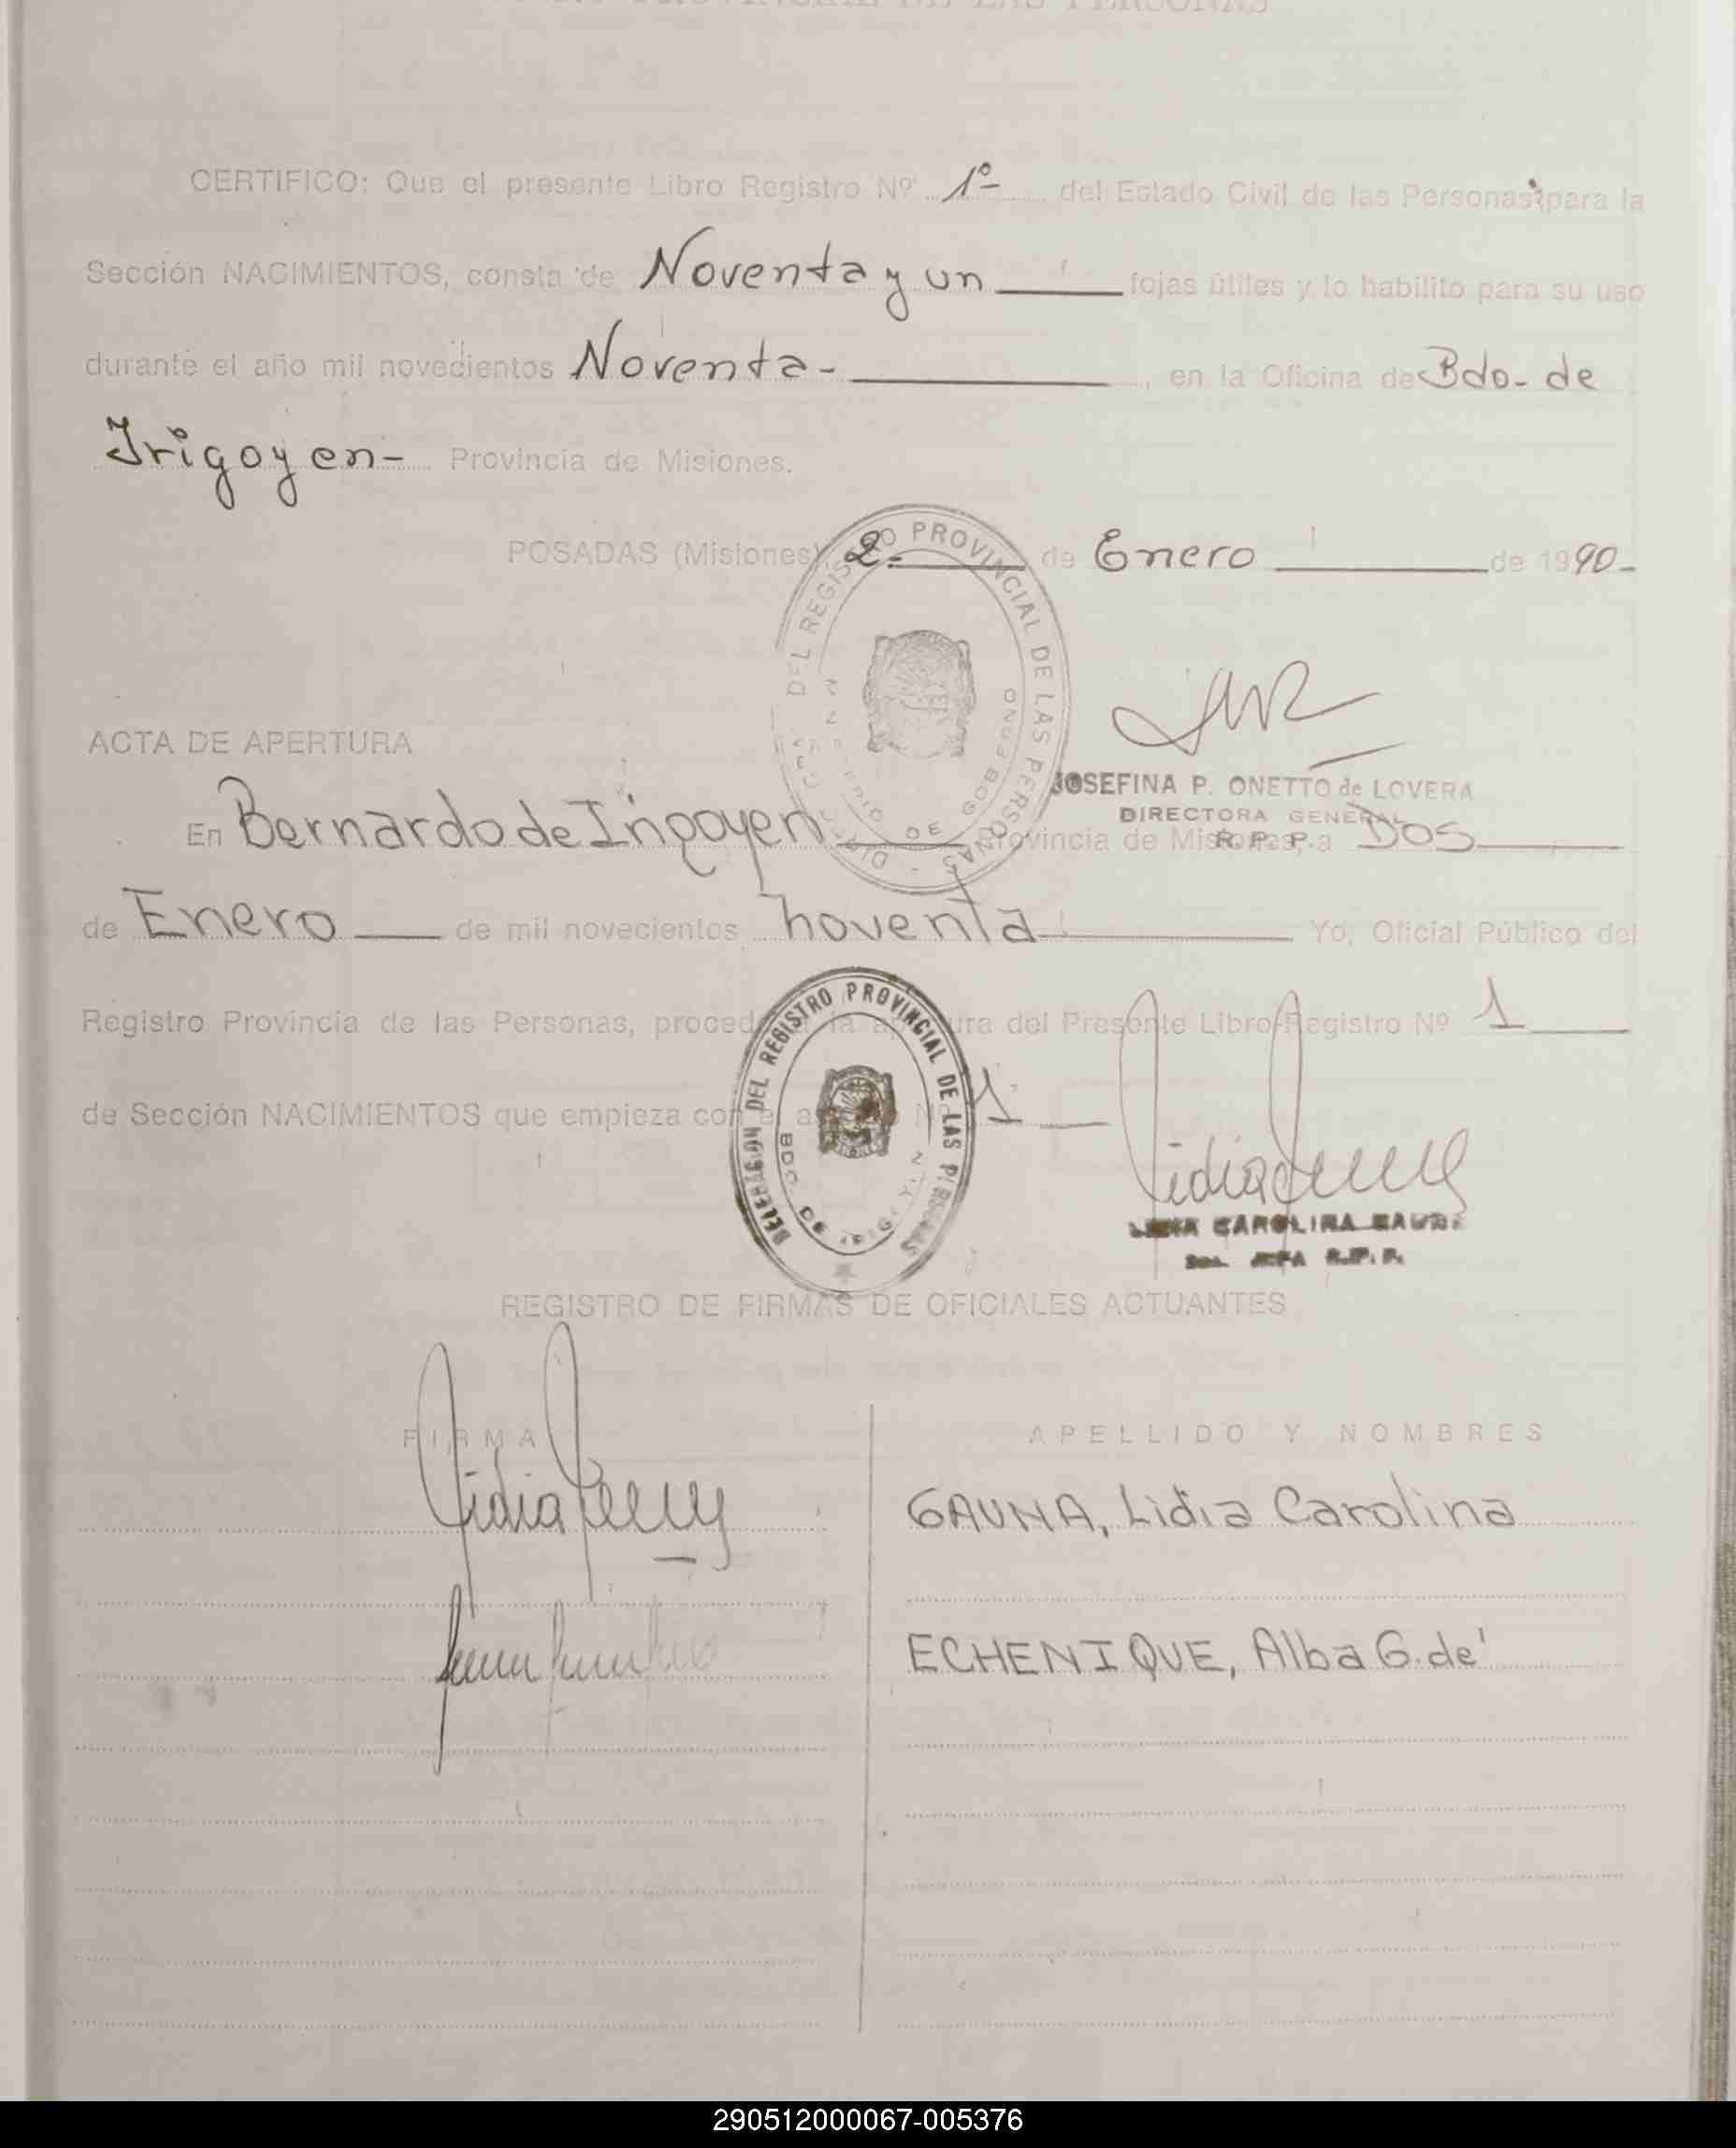 PROVINCIAL DE LAS PERSONAS
CERTIFICO: Que el presente Libro Registro Nº 1º- del Estado Civil de las Personas para la
Sección NACIMIENTOS, consta de Noventa y un fojas útiles y lo habilito para su uso
durante el año mil novecientos Noventa- , en la Oficina de Bdo- de
Irigoyen- Provincia de Misiones.
POSADAS (Misiones) 2- de Enero de 1990-
DEL REGISTRO PROVINCIAL DE LAS PERSONAS
DE GOBIERNO
ACTA DE APERTURA
JOSEFINA P. ONETTO de LOVERA
DIRECTORA GENERAL
R. P. P.
En Bernardo de Irigoyen Provincia de Misiones, a DOS
de Enero de mil novecientos noventa Yo, Oficial Público del
Registro Provincia de las Personas, procedo a la apertura del Presente Libro Registro Nº 1
de Sección NACIMIENTOS que empieza con el acta Nº 1
DELEGACION DEL REGISTRO PROVINCIAL DE LAS PERSONAS
BDO. DE IRIGOYEN
LIDIA CAROLINA GAUNA
JEFA R.P.P.
REGISTRO DE FIRMAS DE OFICIALES ACTUANTES
FIRMA APELLIDO Y NOMBRES
GAUNA, Lidia Carolina
ECHENIQUE, Alba G. de
290512000067-005376